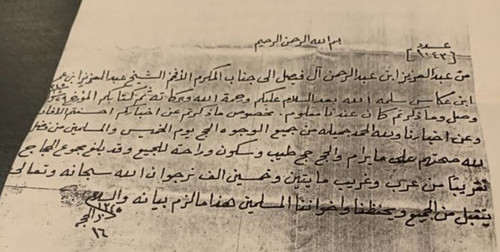 بسم الله الرحمن الرحيم
عدد
١٠٤٣
من عبدالعزيز ابن عبدالرحمن آل فيصل الى جناب المكرم الأفخم الشيخ عبدالعزيز ابن
ابن عكاس سلمه الله بعد السلام عليكم ورحمة الله وبركاته ثم كتابكم المؤرخ
وصل وما ذكرتم كان عندنا معلوم بخصوص ما ذكرتم عن اخباركم احسنتم الافاده
وعن اخبارنا ولله الحمد جميله من جميع الوجوه والحج يوم الخميس والمسلمين من فضل
الله صحتهم على ما يرام والحج حج طيب وسكون وراحة للجميع وقد بلغ مجموع الحاج
تقريباً من عرب وغريب مايتين وخمسين الف نرجو ان الله سبحانه وتعالى
يتقبل من الجميع ويحفظنا واخواننا المسلمين هذا ما لزم بيانه والسلام
١٦